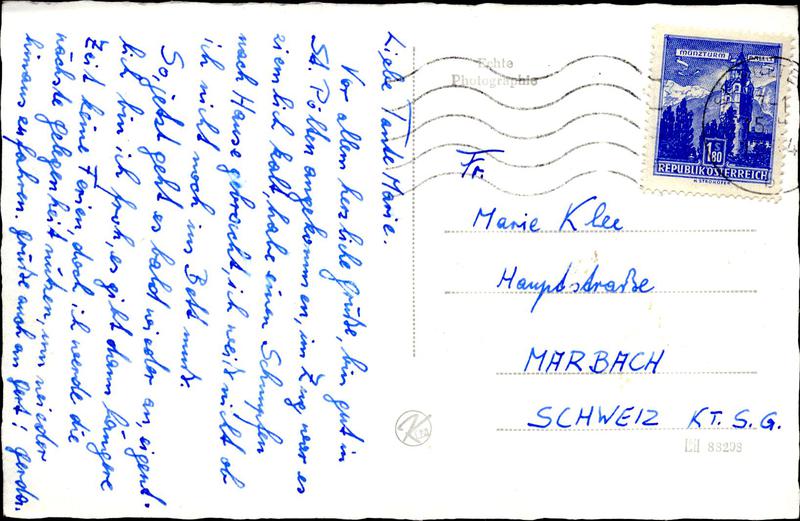 Liebe Tante Marie.
Vor allem herzliche Grüße, bin gut in
St. Pölten angekommen, im Zug war es
ziemlich kalt, habe einen Schnupfen
nach Hause gebracht, ich weiß nicht ob
ich nicht noch ins Bett muß.
So, jetzt geht es bald wieder an, eigent-
lich bin ich froh, es gibt dann längere
Zeit keine Ferien, doch ich werde die
nächste gelegenheit nützen, um wieder
hinaus zu fahren. grüße auch an Gert! Gerda.
Echte
Photographie
MÜNZTURM
1 S
80
REPUBLIK ÖSTERREICH
Fr.
Marie Klee
Hauptstraße
MARBACH
SCHWEIZ KT. S. G.
K
88298